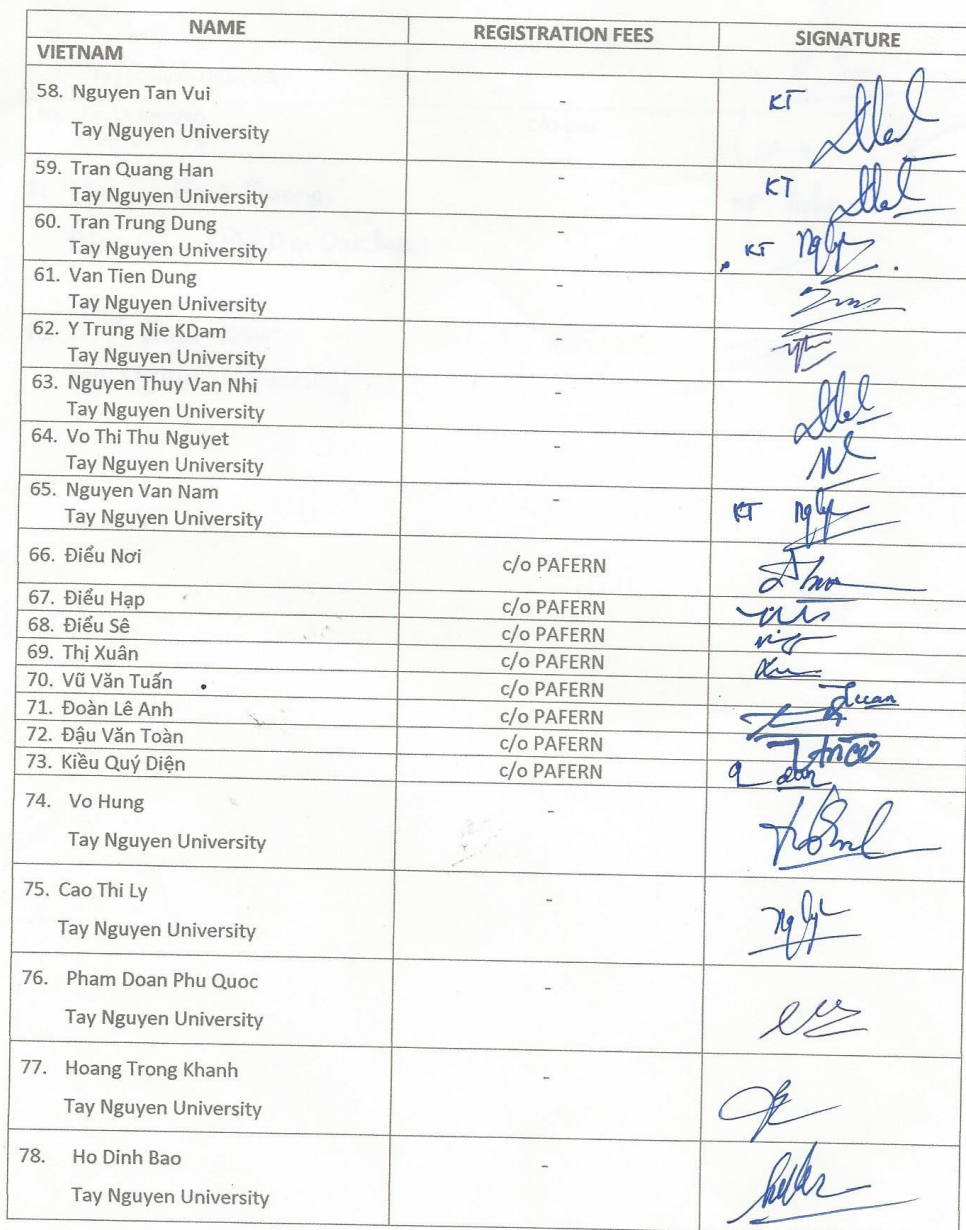 NAME REGISTRATION FEES SIGNATURE
VIETNAM
58. Nguyen Tan Vui - KT
Tay Nguyen University
59. Tran Quang Han - KT
Tay Nguyen University
60. Tran Trung Dung - KT
Tay Nguyen University
61. Van Tien Dung -
Tay Nguyen University
62. Y Trung Nie KDam -
Tay Nguyen University
63. Nguyen Thuy Van Nhi -
Tay Nguyen University
64. Vo Thi Thu Nguyet -
Tay Nguyen University
65. Nguyen Van Nam - KT
Tay Nguyen University
66. Điểu Nơi c/o PAFERN
67. Điểu Hạp c/o PAFERN
68. Điểu Sê c/o PAFERN
69. Thị Xuân c/o PAFERN
70. Vũ Văn Tuấn c/o PAFERN
71. Đoàn Lê Anh c/o PAFERN
72. Đậu Văn Toàn c/o PAFERN
73. Kiều Quý Diện c/o PAFERN
74. Vo Hung -
Tay Nguyen University
75. Cao Thi Ly -
Tay Nguyen University
76. Pham Doan Phu Quoc -
Tay Nguyen University
77. Hoang Trong Khanh -
Tay Nguyen University
78. Ho Dinh Bao -
Tay Nguyen University